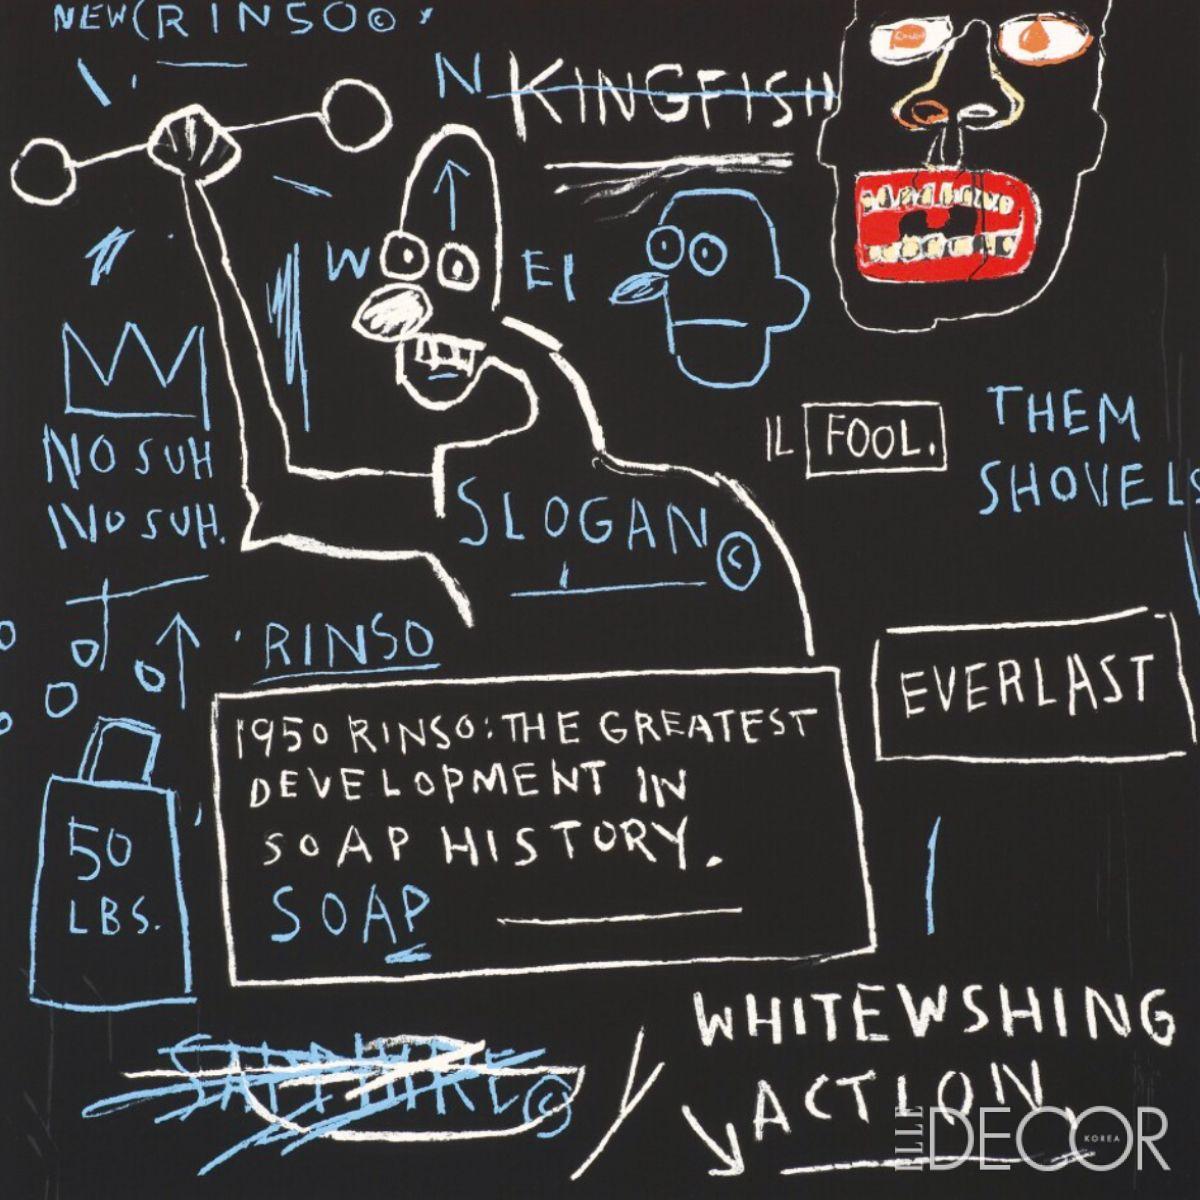 NEW(RINSO©
N KINGFISH
W EI
IL FOOL.
THEM
SHOVELS
NO SUH
NO SUH.
SLOGAN©
'RINSO
EVERLAST
1950 RINSO: THE GREATEST
DEVELOPMENT IN
SOAP HISTORY.
SOAP
50
LBS.
©
WHITEWSHING
ACTION.
ELLE DECOR KOREA